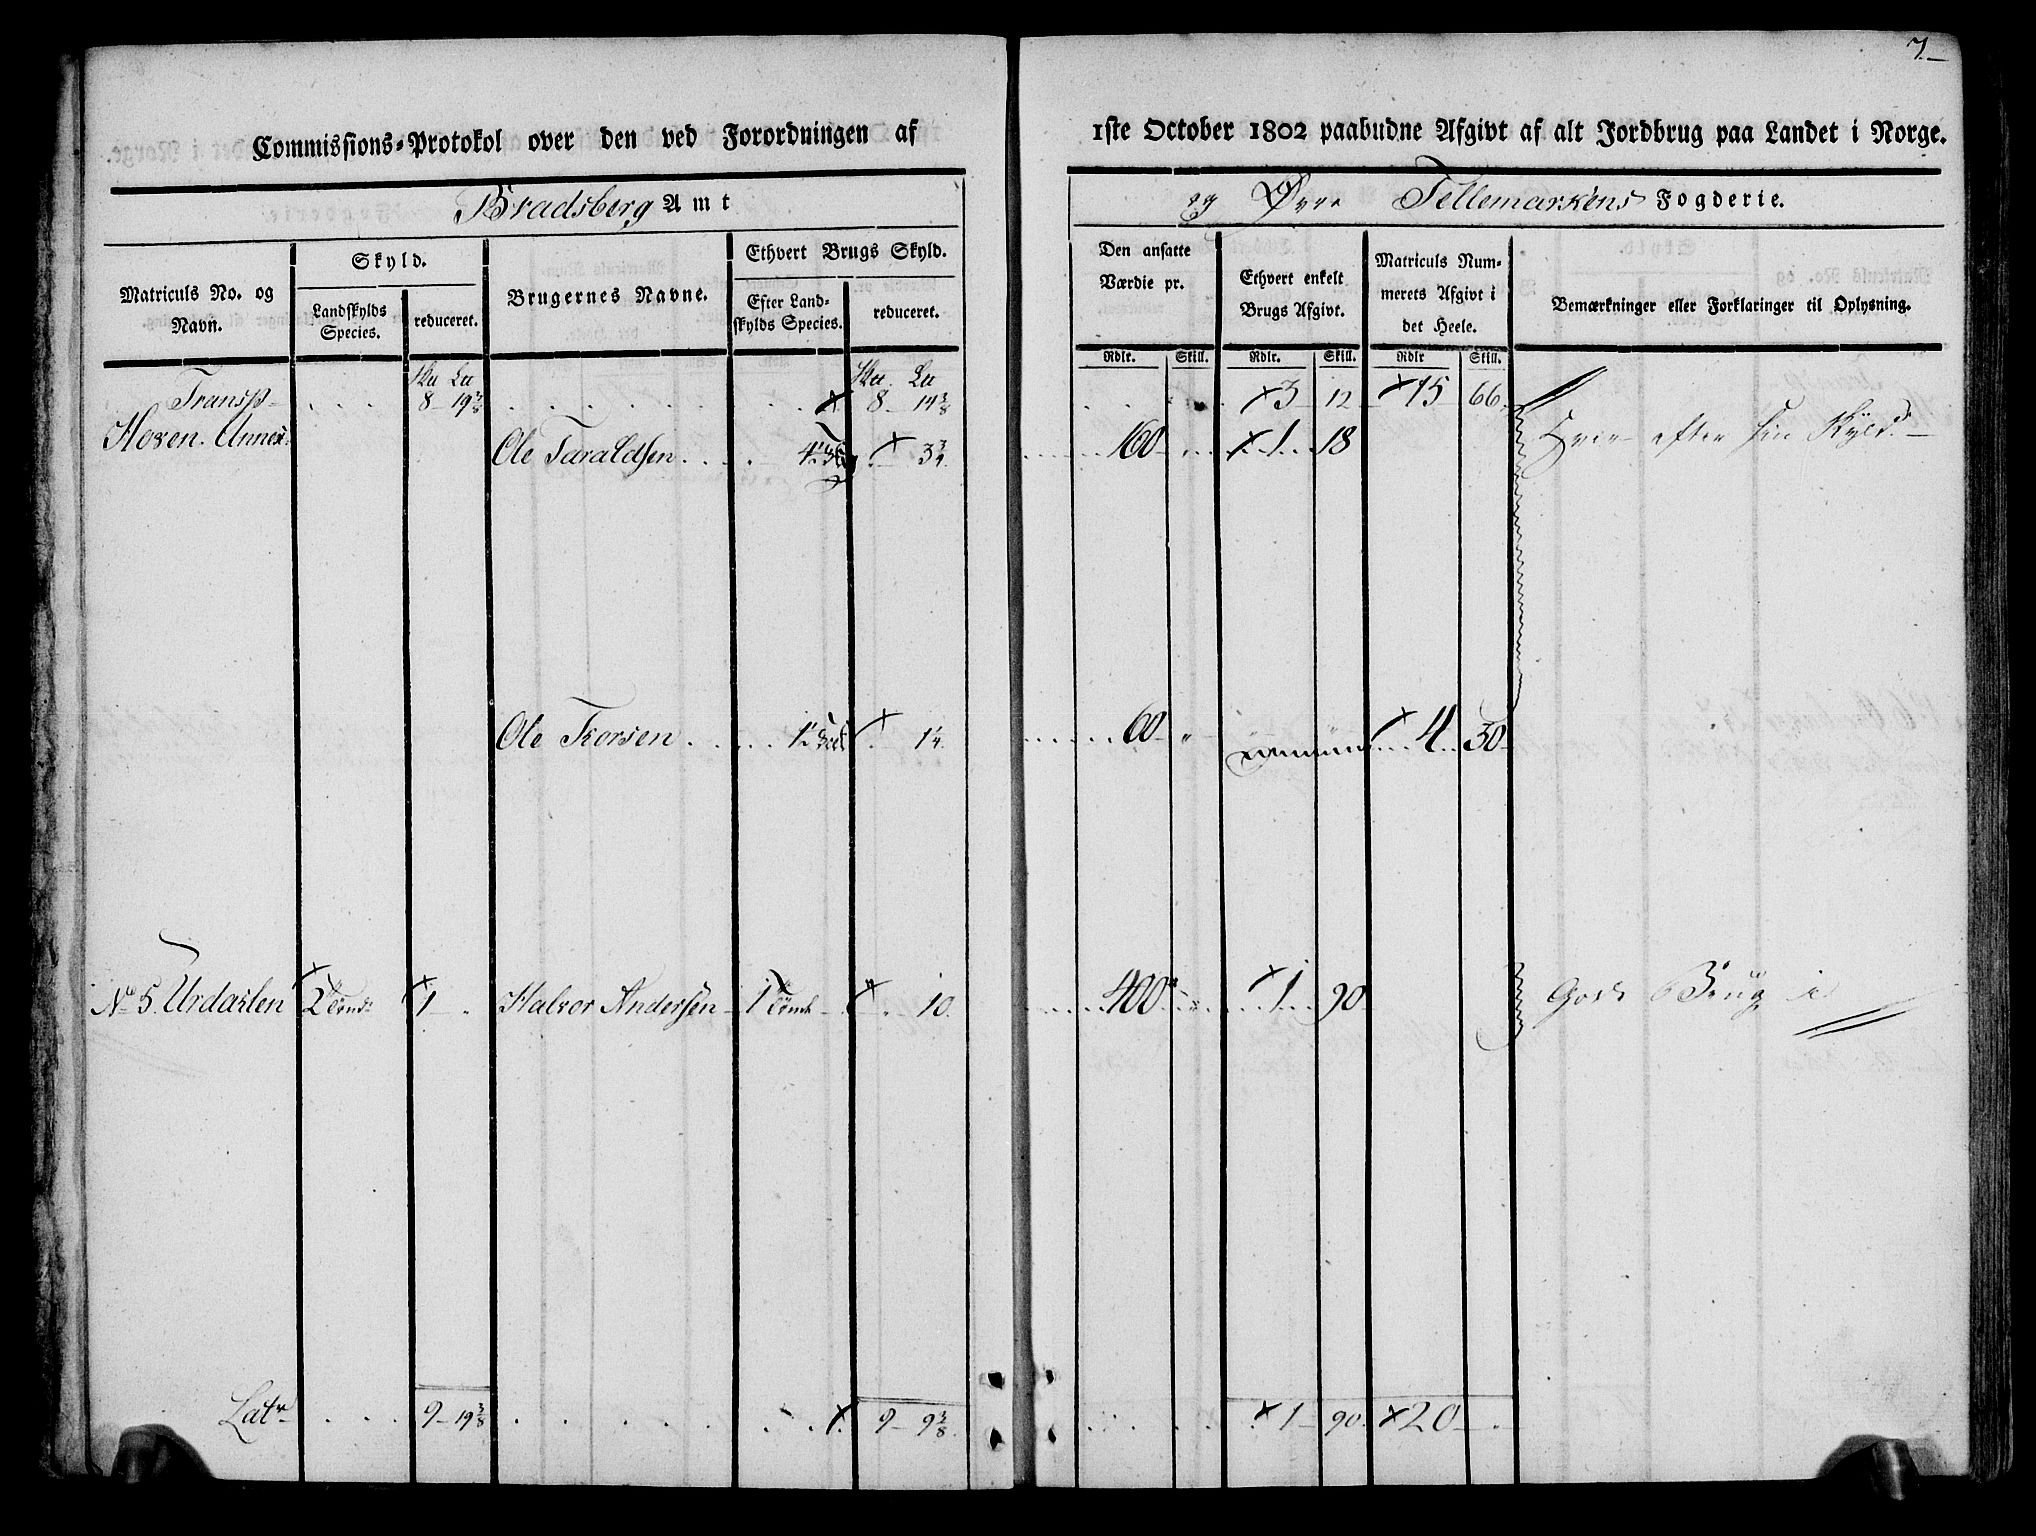 7.
Commissions-Protokol over den ved Forordningen af 1ste October 1802 paabudne Afgivt af alt Jordbrug paa Landet i Norge.
Bradsberg Amt og Øvre Tellemarkens Fogderie.
Matriculs No. og Navn.
Skyld.
Landskylds Species.
reduceret.
Brugernes Navne.
Ethvert Brugs Skyld.
Efter Landskylds Species.
reduceret.
Den ansatte Værdie pr.
Ethvert enkelt Brugs Afgivt.
Matriculs Nummerets Afgivt i det Heele.
Bemærkninger eller Forklaringer til Oplysning.
Rdlr. Skill. Rdlr. Skill. Rdlr Skill.
Transp. 8 19 3/8 8 14 3/8 3 12 15 66
Hoven. Annex. Ole Taraldsen 3 3/4 160 1 18 efter sin Skyld.
Ole Torsen 1 1/4 60 " 4 30
No 5. Urdarlen 2 1 Halvor Andersen 1 10. 400 1 90 Brug
Latr 9 19 3/8 9 9 3/8 1 90 20